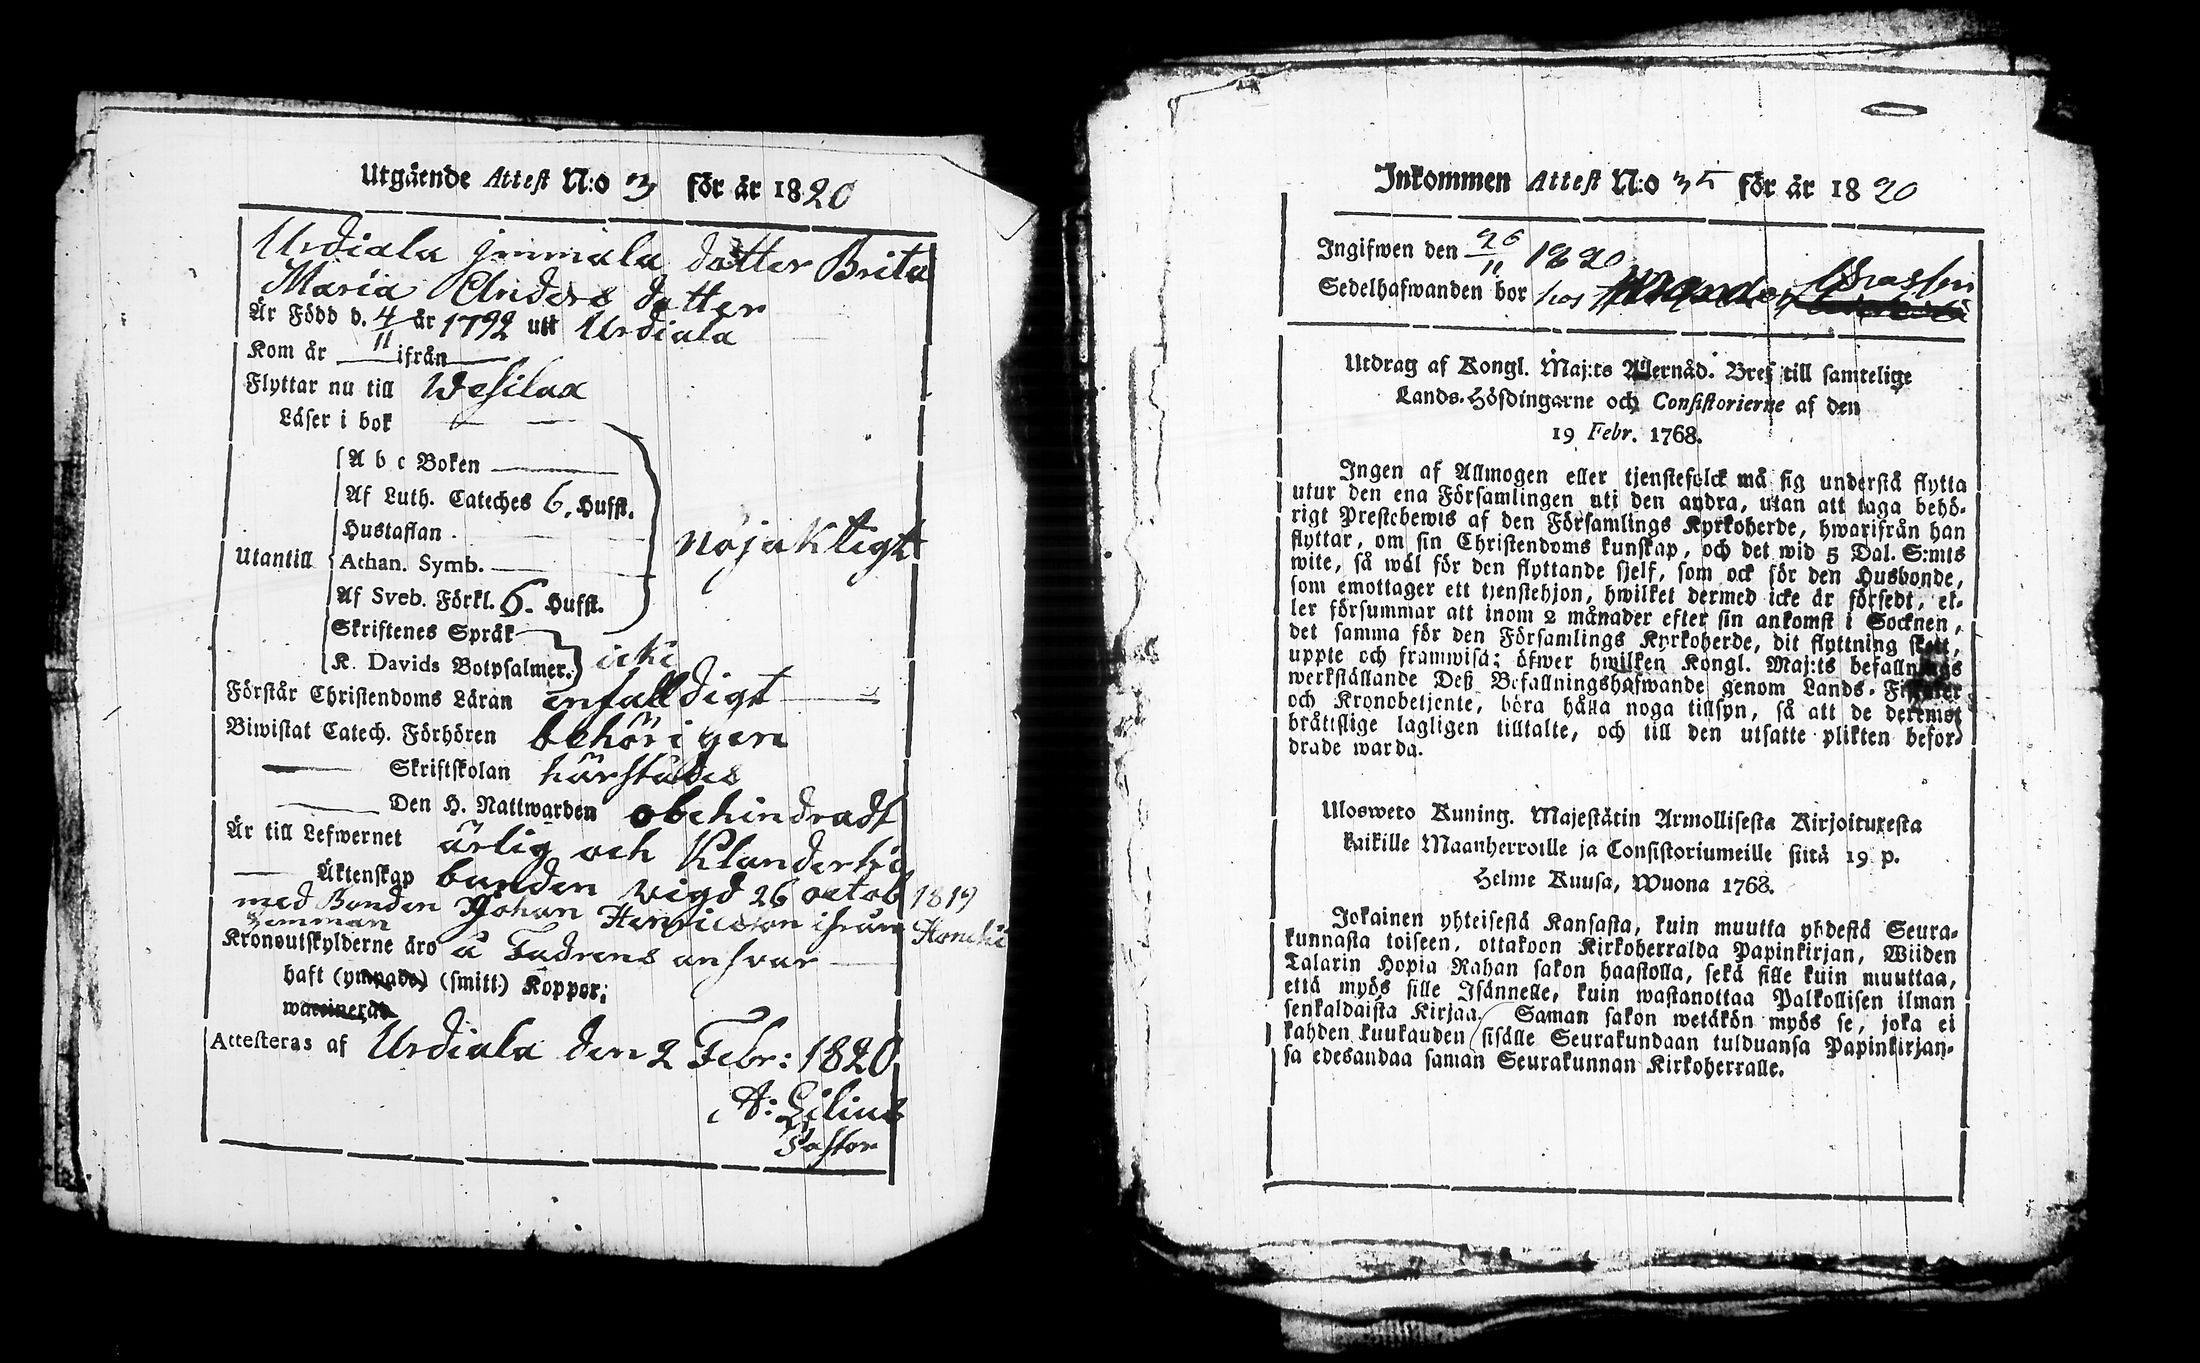 Utgående Attest N:o 3 för år 1820
Urdiala jmmala dotter Brita
Maria Anders dotter
Är Född d. 4/11 år 1792 utt Urdiala
Kom år — ifrån —
Flyttar nu till Wesilax
Läser i bok
A b c Boken
Af Luth. Cateches 6. Hufst.
Hustaflan
nöjaktigt
Utantill
Athan. Symb.
Af Sveb. Förkl. 6. Hufst.
Skriftenes Språk
K. Davids Botpsalmer. icke
Förstår Christendoms Läran enfalldigt
Biwistat Catech. Förhören behörigen
— Skriftskolan härstädes
— Den H. Nattwarden obehindradt
Är till Lefwernet ärlig och
— Äktenskap bunden vigd 26 octob 1819
med Bonden Johan Henricsson ifrån
Kronoutskylderne äro å Fadrens ansvar
haft (ympade) (smitt.) Koppor;
waccinerad
Attesteras af Urdiala den 2 Febr: 1820
A: Lilius
Pastor
Inkommen Attest N:o 35 för år 1820
Ingifwen den 26/11 1820
Sedelhafwanden bor hos
Utdrag af Kongl. Maj:ts Allernåd. Bref till samtelige
Lands-Höfdingarne och Consistorierne af den
19 Febr. 1768.
Ingen af Allmogen eller tjenstefolck må sig understå flytta
utur den ena Församlingen uti den andra, utan att taga behö-
rigt Prestebewis af den Församlings Kyrkoherde, hwarifrån han
flyttar, om sin Christendoms kunskap, och det wid 5 Dal. S:mts
wite, så wäl för den flyttande sjelf, som ock för den Husbonde,
som emottager ett tjenstehjon, hwilket dermed icke är försedt, el-
ler försummar att inom 2 månader efter sin ankomst i Socknen,
det samma för den Församlings Kyrkoherde, dit flyttning skett,
uppte och framwisa; öfwer hwilken Kongl. Maj:ts befallnings
werkställande Deß Befallningshafwande genom Lands-Fiskaler
och Kronobetjente, böra hålla noga tillsyn, så att de deremot
bråttslige lagligen tilltalte, och till den utsatte plikten befor-
drade warda.
Ulosweto Kuning. Majestätin Armollisesta Kirjoituxesta
kaikille Maanherroille ja Consistoriumeille siitä 19 p.
Helme Kuusa, Wuona 1768.
Jokainen yhteisestä Kansasta, kuin muutta yhdestä Seura-
kunnasta toiseen, ottakoon Kirkoherralda Papinkirjan, Wiiden
Talarin Hopia Rahan sakon haastolla, sekä sille kuin muuttaa,
että myös sille Isännelle, kuin wastanottaa Palkollisen ilman
senkaldaista Kirjaa. Saman sakon wetäkön myös se, joka ei
kahden kuukauden sisälle Seurakundaan tulduansa Papinkirjan-
sa edesandaa saman Seurakunnan Kirkoherralle.